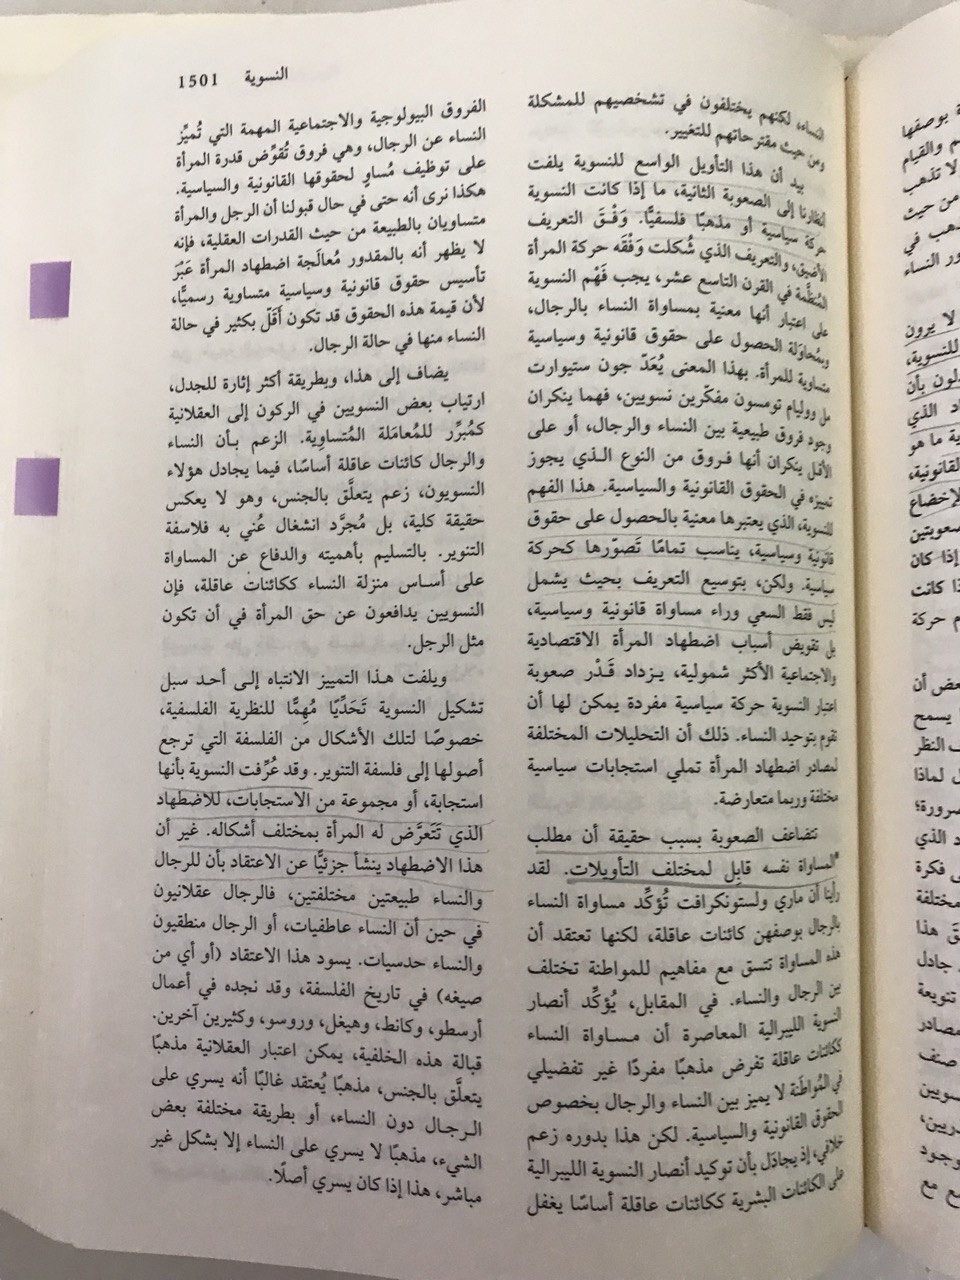 النسوية 1501
النساء، لكنهم يختلفون في تشخصيهم للمشكلة
ومن حيث مقترحاتهم للتغيير.
بيد أن هذا التأويل الواسع للنسوية يلفت
انظارنا إلى الصعوبة الثانية، ما إذا كانت النسوية
حركة سياسية أو مذهبًا فلسفيًّا. وَفْقَ التعريف
الأضيق، والتعريف الذي شُكلت وَفْقَه حركة المرأة
المُنظَّمة في القرن التاسع عشر، يجب فَهْم النسوية
على اعتبار أنها معنية بمساواة النساء بالرجال،
وبمُحاوَلة الحصول على حقوق قانونية وسياسية
متساوية للمرأة. بهذا المعنى يُعَدّ جون ستيوارت
مل ووليام تومسون مفكّرين نسويين، فهما ينكران
وجود فروق طبيعية بين النساء والرجال، أو على
الأقل ينكران أنها فروق من النوع الذي يجوز
تمييزه في الحقوق القانونية والسياسية. هذا الفهم
للنسوية، الذي يعتبرها معنية بالحصول على حقوق
قانونية وسياسية، يناسب تمامًا تَصوّرها كحركة
سياسية. ولكن، بتوسيع التعريف بحيث يشمل
ليس فقط السعي وراء مساواة قانونية وسياسية،
بل تقويض أسباب اضطهاد المرأة الاقتصادية
والاجتماعية الأكثر شمولية، يزداد قَدْر صعوبة
اعتبار النسوية حركة سياسية مفردة يمكن لها أن
تقوم بتوحيد النساء. ذلك أن التحليلات المختلفة
لمصادر اضطهاد المرأة تملي استجابات سياسية
مختلفة وربما متعارضة.
تتضاعف الصعوبة بسبب حقيقة أن مطلب
المساواة نفسه قابِل لمختلف التأويلات. لقد
رأينا أن ماري ولستونكرافت تُؤكِّد مساواة النساء
بالرجال بوصفهن كائنات عاقلة، لكنها تعتقد أن
هذه المساواة تتسق مع مفاهيم للمواطنة تختلف
بين الرجال والنساء. في المقابل، يُؤكِّد أنصار
النسوية الليبرالية المعاصرة أن مساواة النساء
ككائنات عاقلة تفرض مذهبًا مفردًا غير تفضيلي
في المُواطَنة لا يميز بين النساء والرجال بخصوص
الحقوق القانونية والسياسية. لكن هذا بدوره زعم
خلافي، إذ يجادَل بأن توكيد أنصار النسوية الليبرالية
على الكائنات البشرية ككائنات عاقلة أساسًا يغفل
الفروق البيولوجية والاجتماعية المهمة التي تُميِّز
النساء عن الرجال، وهي فروق تُقوِّض قدرة المرأة
على توظيف مُساوٍ لحقوقها القانونية والسياسية.
هكذا نرى أنه حتى في حال قبولنا أن الرجل والمرأة
متساويان بالطبيعة من حيث القدرات العقلية، فإنه
لا يظهر أنه بالمقدور مُعالَجة اضطهاد المرأة عَبْرَ
تأسيس حقوق قانونية وسياسية متساوية رسميًّا،
لأن قيمة هذه الحقوق قد تكون أَقَلّ بكثير في حالة
النساء منها في حالة الرجال.
يضاف إلى هذا، وبطريقة أكثر إثارة للجدل،
ارتياب بعض النسويين في الركون إلى العقلانية
كمُبرِّر للمُعامَلة المُتساوِية. الزعم بأن النساء
والرجال كائنات عاقلة أساسًا، فيما يجادل هؤلاء
النسويون، زعم يتعلَّق بالجنس، وهو لا يعكس
حقيقة كلية، بل مُجرَّد انشغال عُني به فلاسفة
التنوير. بالتسليم بأهميته والدفاع عن المساواة
على أساس منزلة النساء ككائنات عاقلة، فإن
النسويين يدافعون عن حق المرأة في أن تكون
مثل الرجل.
ويلفت هذا التمييز الانتباه إلى أحد سبل
تشكيل النسوية تَحَدّيًا مُهِمًّا للنظرية الفلسفية،
خصوصًا لتلك الأشكال من الفلسفة التي ترجع
أصولها إلى فلسفة التنوير. وقد عُرِّفت النسوية بأنها
استجابة، أو مجموعة من الاستجابات، للاضطهاد
الذي تَتَعرَّض له المرأة بمختلف أشكاله. غير أن
هذا الاضطهاد ينشأ جزئيًّا عن الاعتقاد بأن للرجال
والنساء طبيعتين مختلفتين، فالرجال عقلانيون
في حين أن النساء عاطفيات، أو الرجال منطقيون
والنساء حدسيات. يسود هذا الاعتقاد (أو أي من
صيغه) في تاريخ الفلسفة، وقد نجده في أعمال
أرسطو، وكانط، وهيغل، وروسو، وكثيرين آخرين.
قبالة هذه الخلفية، يمكن اعتبار العقلانية مذهبًا
يتعلَّق بالجنس، مذهبًا يُعتقد غالبًا أنه يسري على
الرجال دون النساء، أو بطريقة مختلفة بعض
الشيء، مذهبًا لا يسري على النساء إلا بشكل غير
مباشر، هذا إذا كان يسري أصلًا.